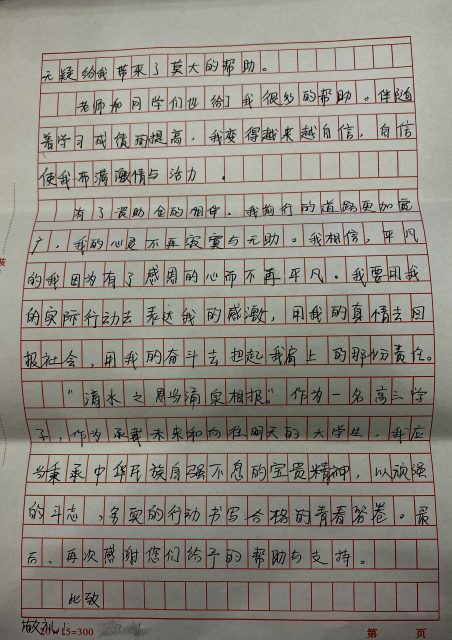 无疑给我带来了莫大的帮助。
老师和同学们也给了我很多的帮助。伴随
着学习成绩的提高，我变得越来越自信，自信
使我布满激情与活力。
有了资助金的相伴，我前行的道路更加宽
广，我的心灵不再寂寞与无助。我相信，平凡
的我因为有了感恩的心而不再平凡。我要用我
的实际行动去表达我的感激，用我的真情去回
报社会，用我的奋斗去担起我肩上的那份责任。
"滴水之恩当涌泉相报。"作为一名高三学
子，作为承载未来和向往明天的大学生，我应
当秉承中华民族自强不息的宝贵精神，以顽强
的斗志，务实的行动书写合格的青春答卷。最
后，再次感谢您们给予的帮助与支持。
此致
敬礼！
20×15=300 第 页
装